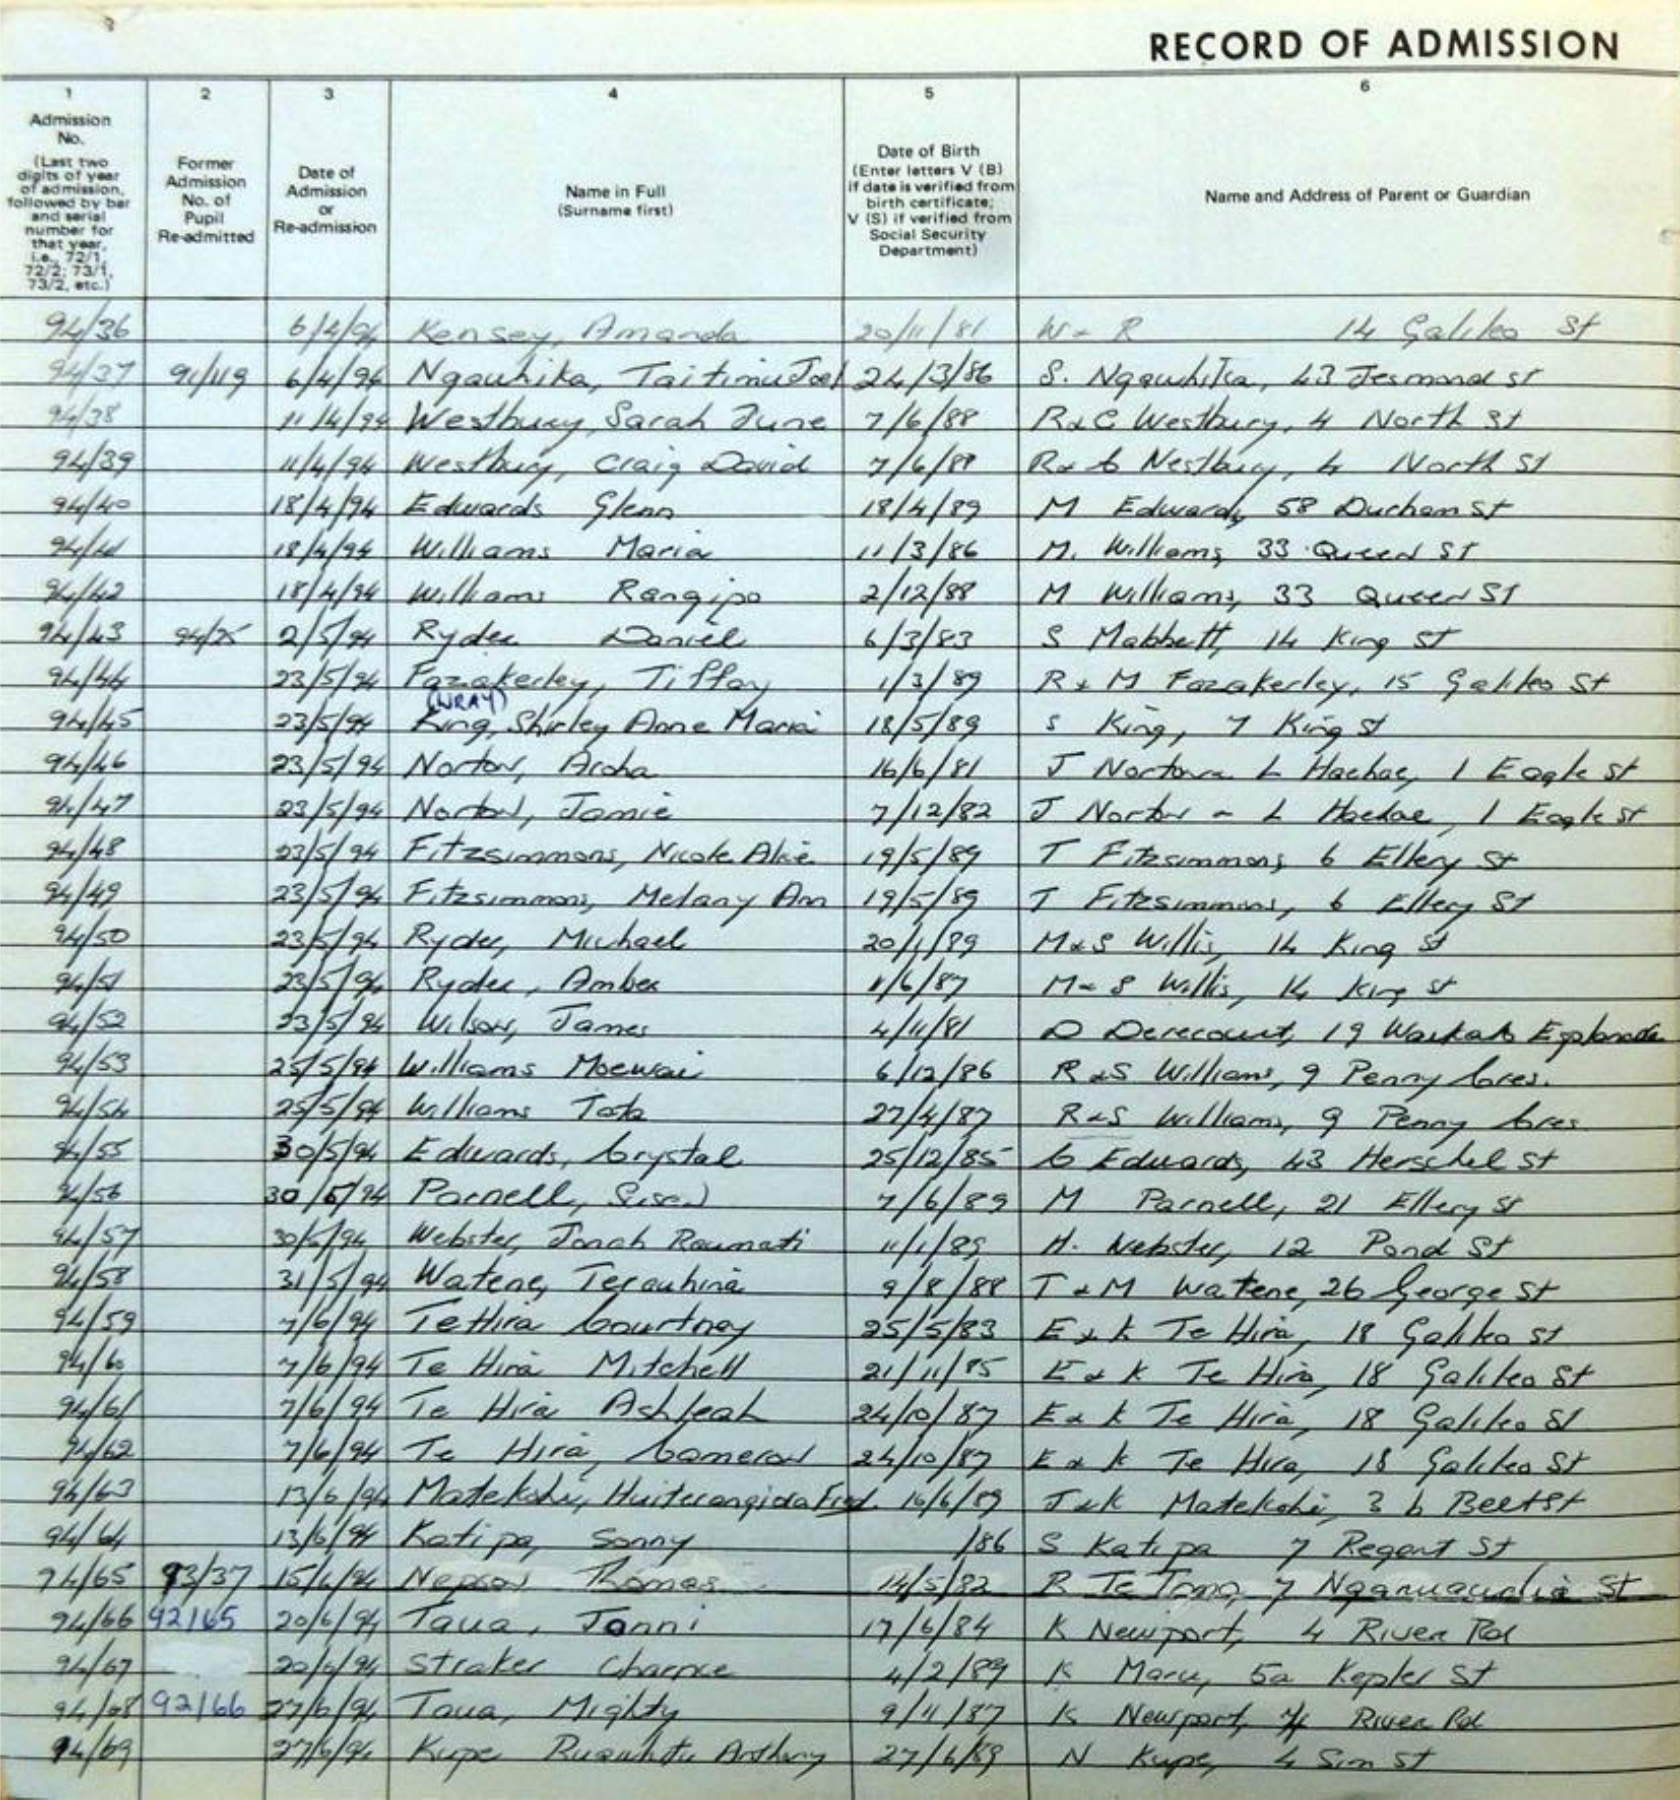 RECORD OF ADMISSION
1 2 3 4 5 6
Admission No. (Last two digits of year of admission, followed by bar and serial number for that year, i.e., 72/1, 72/2; 73/1, 73/2, etc.)
Former Admission No. of Pupil Re-admitted
Date of Admission or Re-admission
Name in Full (Surname first)
Date of Birth (Enter letters V (B) if date is verified from birth certificate; V (S) if verified from Social Security Department)
Name and Address of Parent or Guardian
94/36 6/4/94 Kensey, Amanda 20/11/81 W & R 14 Galileo St
94/37 91/119 6/4/94 Ngauhika, Taitimu Joel 24/3/86 S. Ngauhika, 43 Jesmond St
94/38 11/4/94 Westbury, Sarah June 7/6/88 R & C Westbury, 4 North St
94/39 11/4/94 Westbury, Craig David 7/6/88 R & C Westbury, 4 North St
94/40 18/4/94 Edwards Glenn 18/4/89 M Edwards, 58 Durham St
94/41 18/4/94 Williams Maria 11/3/86 M. Williams, 33 Queen St
94/42 18/4/94 Williams Rangipo 2/12/88 M Williams, 33 Queen St
94/43 94/25 2/5/94 Ryder Daniel 6/3/83 S Mabbett, 14 King St
94/44 23/5/94 Fazakerley, Tiffay 1/3/89 R & M Fazakerley, 15 Galileo St
(WRAY)
94/45 23/5/94 King, Shirley Anne Maria 18/5/89 S King, 7 King St
94/46 23/5/94 Norton, Aroha 16/6/81 J Norton & L Haehae, 1 Eagle St
94/47 23/5/94 Norton, Jamie 7/12/82 J Norton & L Haehae, 1 Eagle St
94/48 23/5/94 Fitzsimmons, Nicole 19/5/89 T Fitzsimmons, 6 Ellery St
94/49 23/5/94 Fitzsimmons, Melany Ann 19/5/89 T Fitzsimmons, 6 Ellery St
94/50 23/5/94 Ryder, Michael 20/1/89 M & S Willis, 14 King St
94/51 23/5/94 Ryder, Amber 1/6/87 M & S Willis, 14 King St
94/52 23/5/94 Wilson, James 4/11/81 D Derecourt, 19 Waikato Esplanade
94/53 25/5/94 Williams Moewai 6/12/86 R & S Williams, 9 Penny Cres.
94/54 25/5/94 Williams 27/4/87 R & S Williams, 9 Penny Cres
94/55 30/5/94 Edwards, Crystal 25/12/85 C Edwards, 43 Herschel St
94/56 30/5/94 Parnell, Susan 7/6/89 M Parnell, 21 Ellery St
94/57 30/5/94 Webster, Jonah Raumati 11/1/85 H. Webster, 12 Pond St
94/58 31/5/94 Watene, Terauhina 9/8/88 T & M Watene, 26 George St
94/59 7/6/94 Te Hira Courtney 25/5/83 E & K Te Hira, 18 Galileo St
94/60 7/6/94 Te Hira Mitchell 21/11/85 E & K Te Hira, 18 Galileo St
94/61 7/6/94 Te Hira Ashleah 24/10/87 E & K Te Hira, 18 Galileo St
94/62 7/6/94 Te Hira, Cameron 24/10/87 E & K Te Hira, 18 Galileo St
94/63 13/6/94 16/6/89 J & K 3 b Beet St
94/64 13/6/94 Katipa, Sonny /86 S Katipa 7 Regent St
94/65 93/37 15/6/94 Thomas 14/5/82 R 7 St
94/66 92/65 20/6/94 Taua, Jonni 17/6/84 K Newport, 4 River Rd
94/67 20/6/94 Straker 4/2/89 K Maru, 5a Kepler St
94/68 92/66 27/6/94 Taua, Mighty 9/11/87 K Newport, River Rd
94/69 27/6/94 Kupe Anthony 27/6/89 N Kupe, 4 Sim St